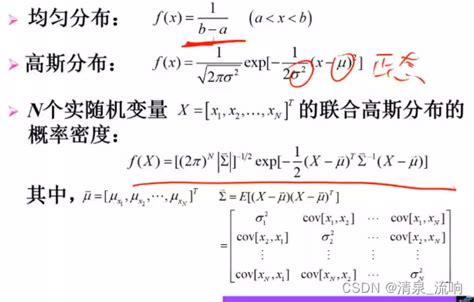 ➢ 均匀分布： f(x) = 1/(b−a) (a < x < b)
➢ 高斯分布： f(x) = 1/√(2πσ²) exp[−1/(2σ²) (x−μ)²] 正态
➢ N个实随机变量 X = [x₁, x₂, …, x_N]^T 的联合高斯分布的
概率密度：
f(X) = [(2π)^N |Σ̄|]^(−1/2) exp[−1/2 (X−μ̄)^T Σ̄^(−1) (X−μ̄)]
其中， μ̄ = [μ_x₁, μ_x₂, …, μ_x_N]^T Σ̄ = E[(X−μ̄)(X−μ̄)^T]
= [ σ₁² cov[x₁,x₂] ⋯ cov[x₁,x_N]
cov[x₂,x₁] σ₂² ⋯ cov[x₂,x_N]
⋮ ⋮ ⋱ ⋮
cov[x_N,x₁] cov[x_N,x₂] ⋯ σ_N² ]
CSDN @清泉_流响